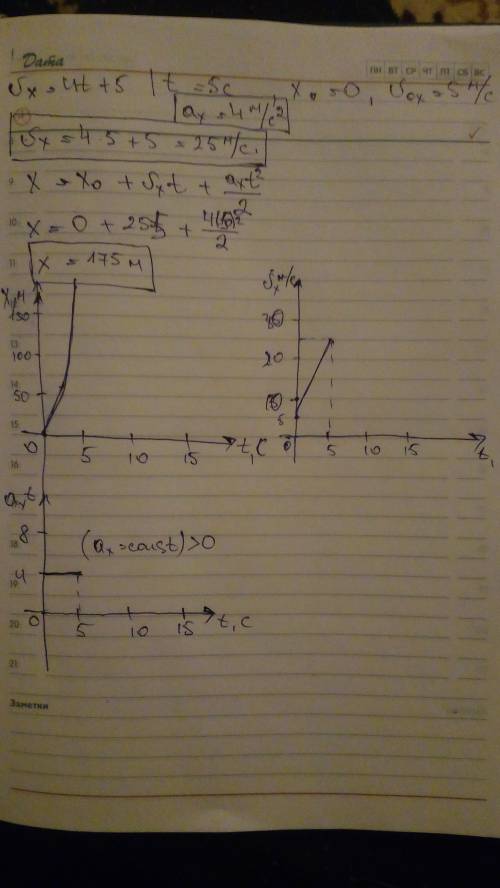 Дата
ПН ВТ СР ЧТ ПТ СБ ВС
υx = 4t + 5 | t = 5c, x0 = 0, υ0x = 5 м/с
ax = 4 м/с²
υx = 4·5 + 5 = 25 м/с,
9 x = x0 + υxt + axt²/2
10 x = 0 + 25·5 + 4(5)²/2
11 x = 175 м
x, м
150
100
50
0 5 10 15 t, c
υx м/с
20
5
0 5 10 15 t,
axt
8
4
(ax = const) > 0
0 5 10 15 t, c
13
14
15
16
18
19
20
21
Заметки